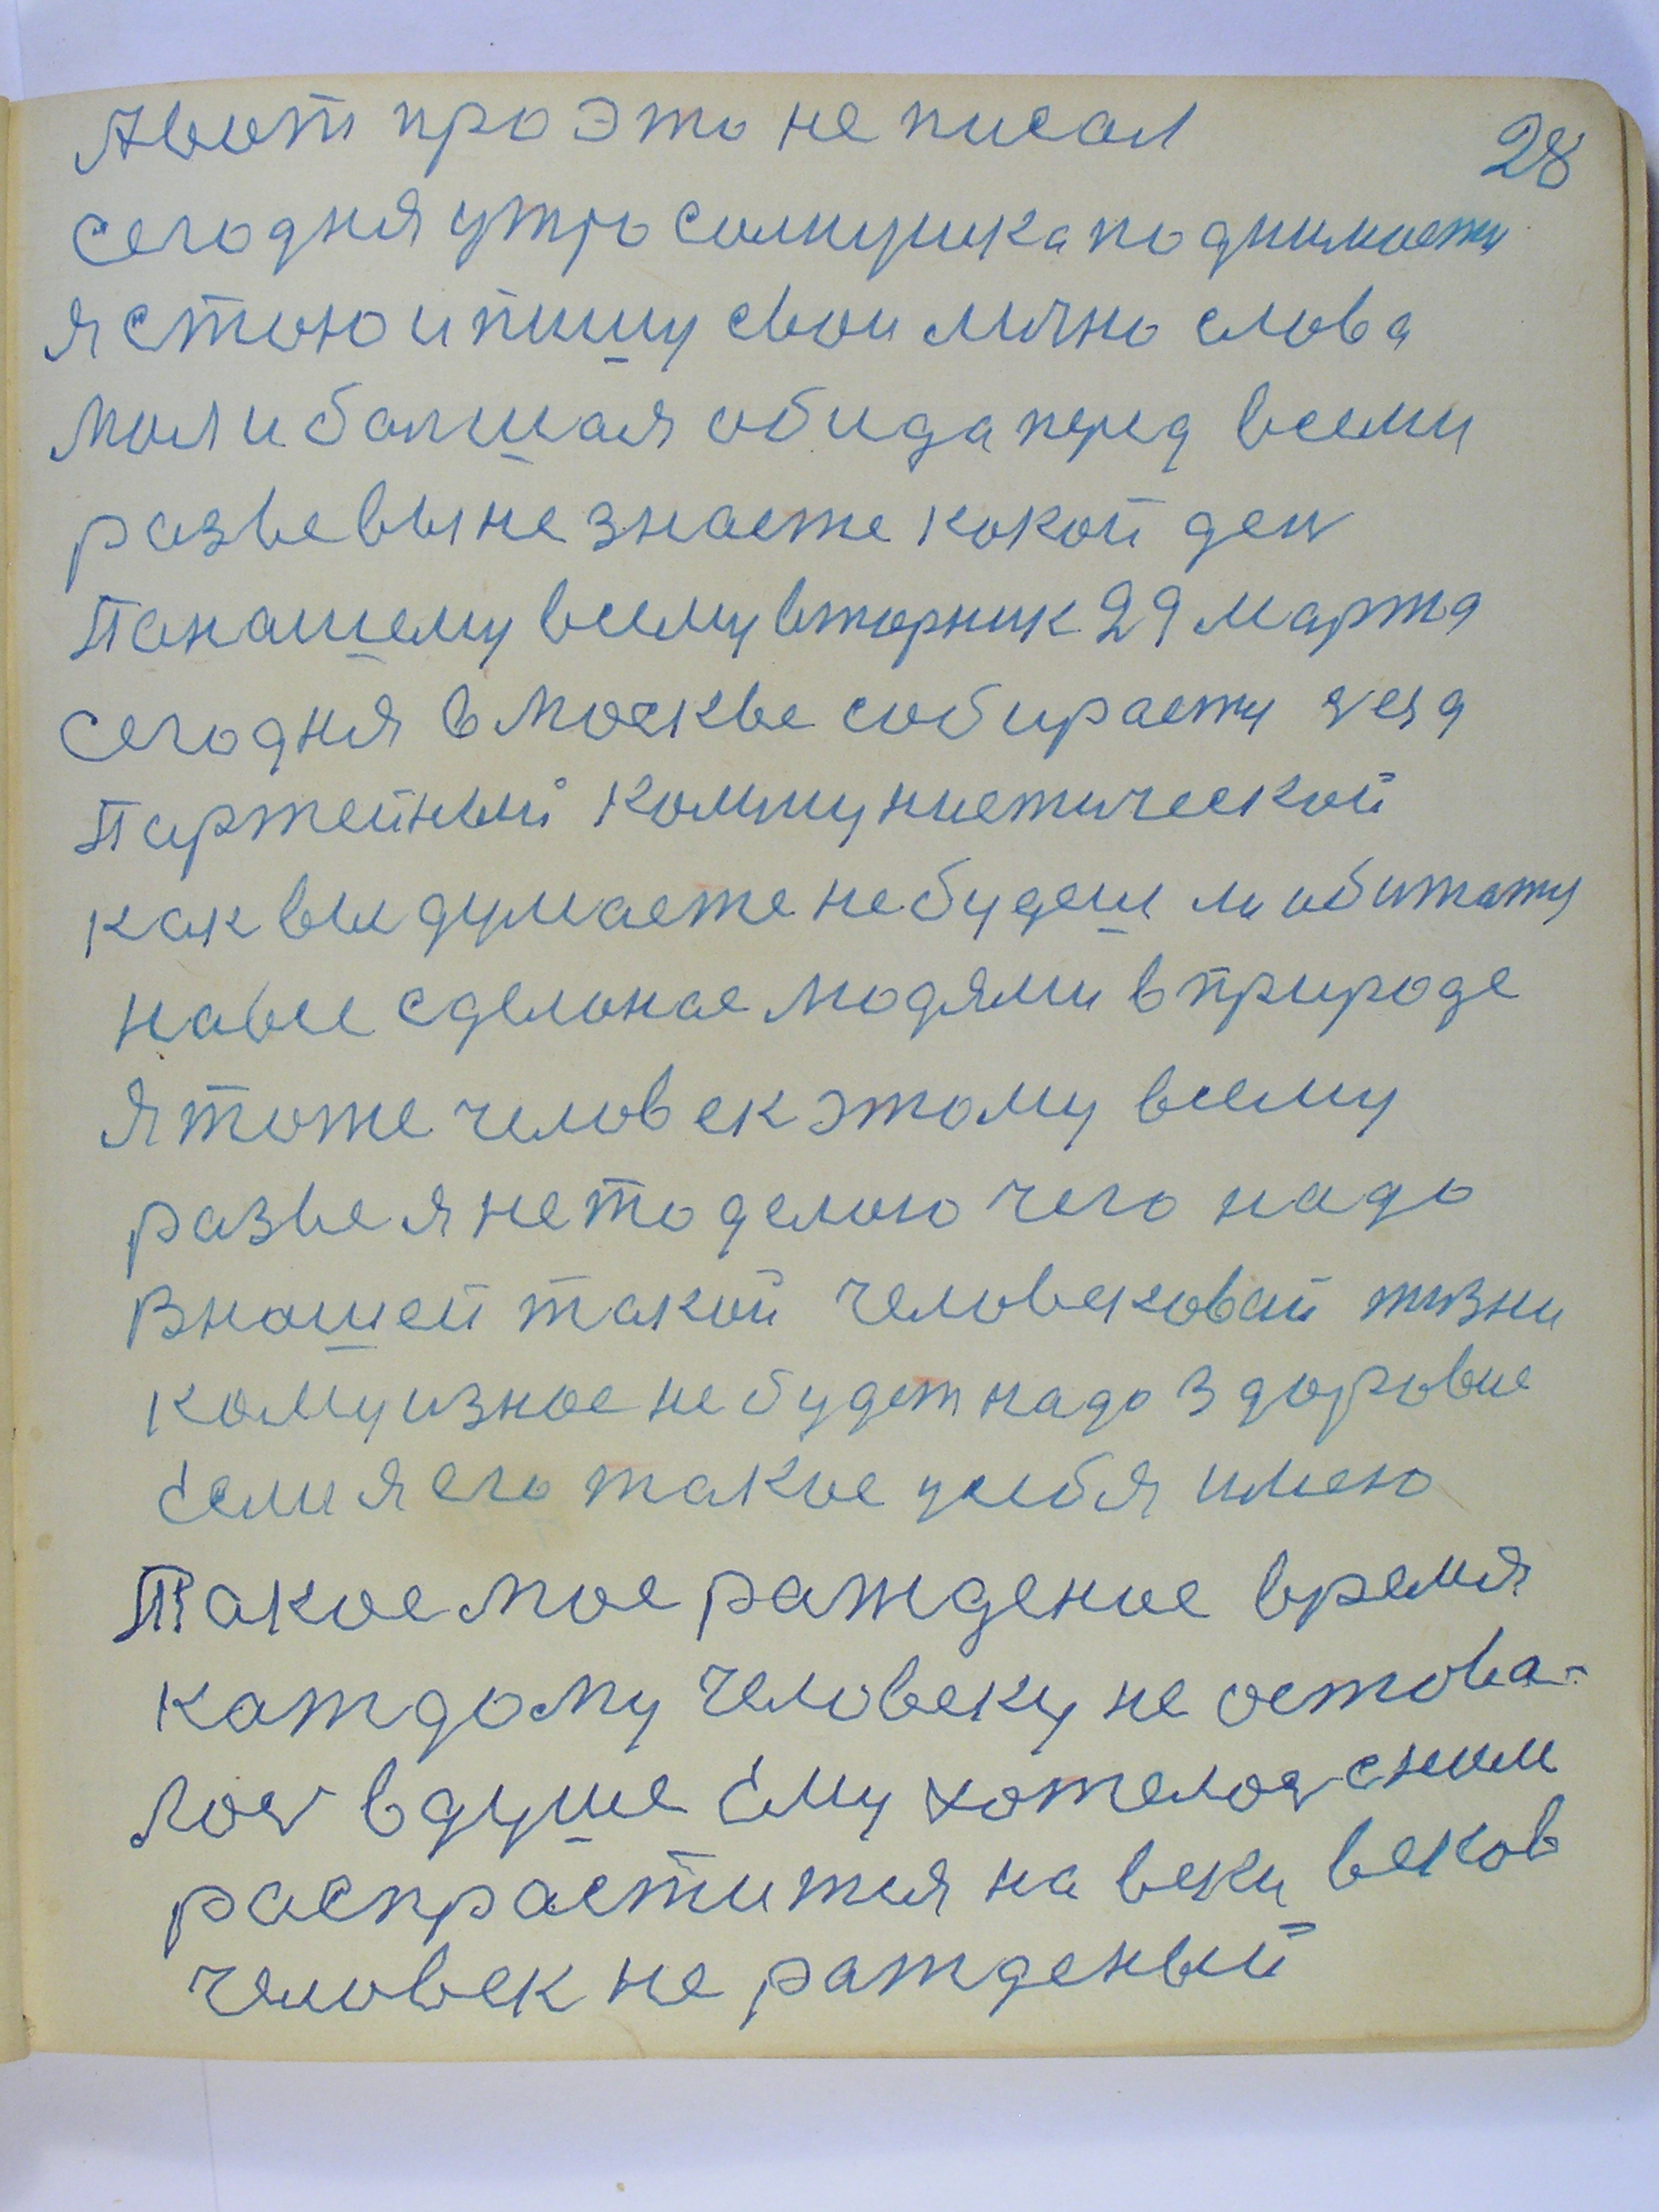 28
Авот про это не писал
Сегодня утро солнушка поднимаетц
я стою и пишу свои лично слова
Моя и балшая обида перед всеми
разве вы не знаете какой ден
Понашему всему вторник 29 марта
Сегодня в Москве собираетц
Партейный коммунистической
как вы думаете не будеш ли
на все сделоное людями в природе
Я тоже человек этому всему
разве я не то делаю чего надо
В нашей такой человековай жизни
кому изнас не будет надо здоровие
Если я его такое усибя имею
Такое мое рождение время
каждому человеку не остова-
лос в душе Ему хотелос сним
распраститися на веки веков
человек не ражденый